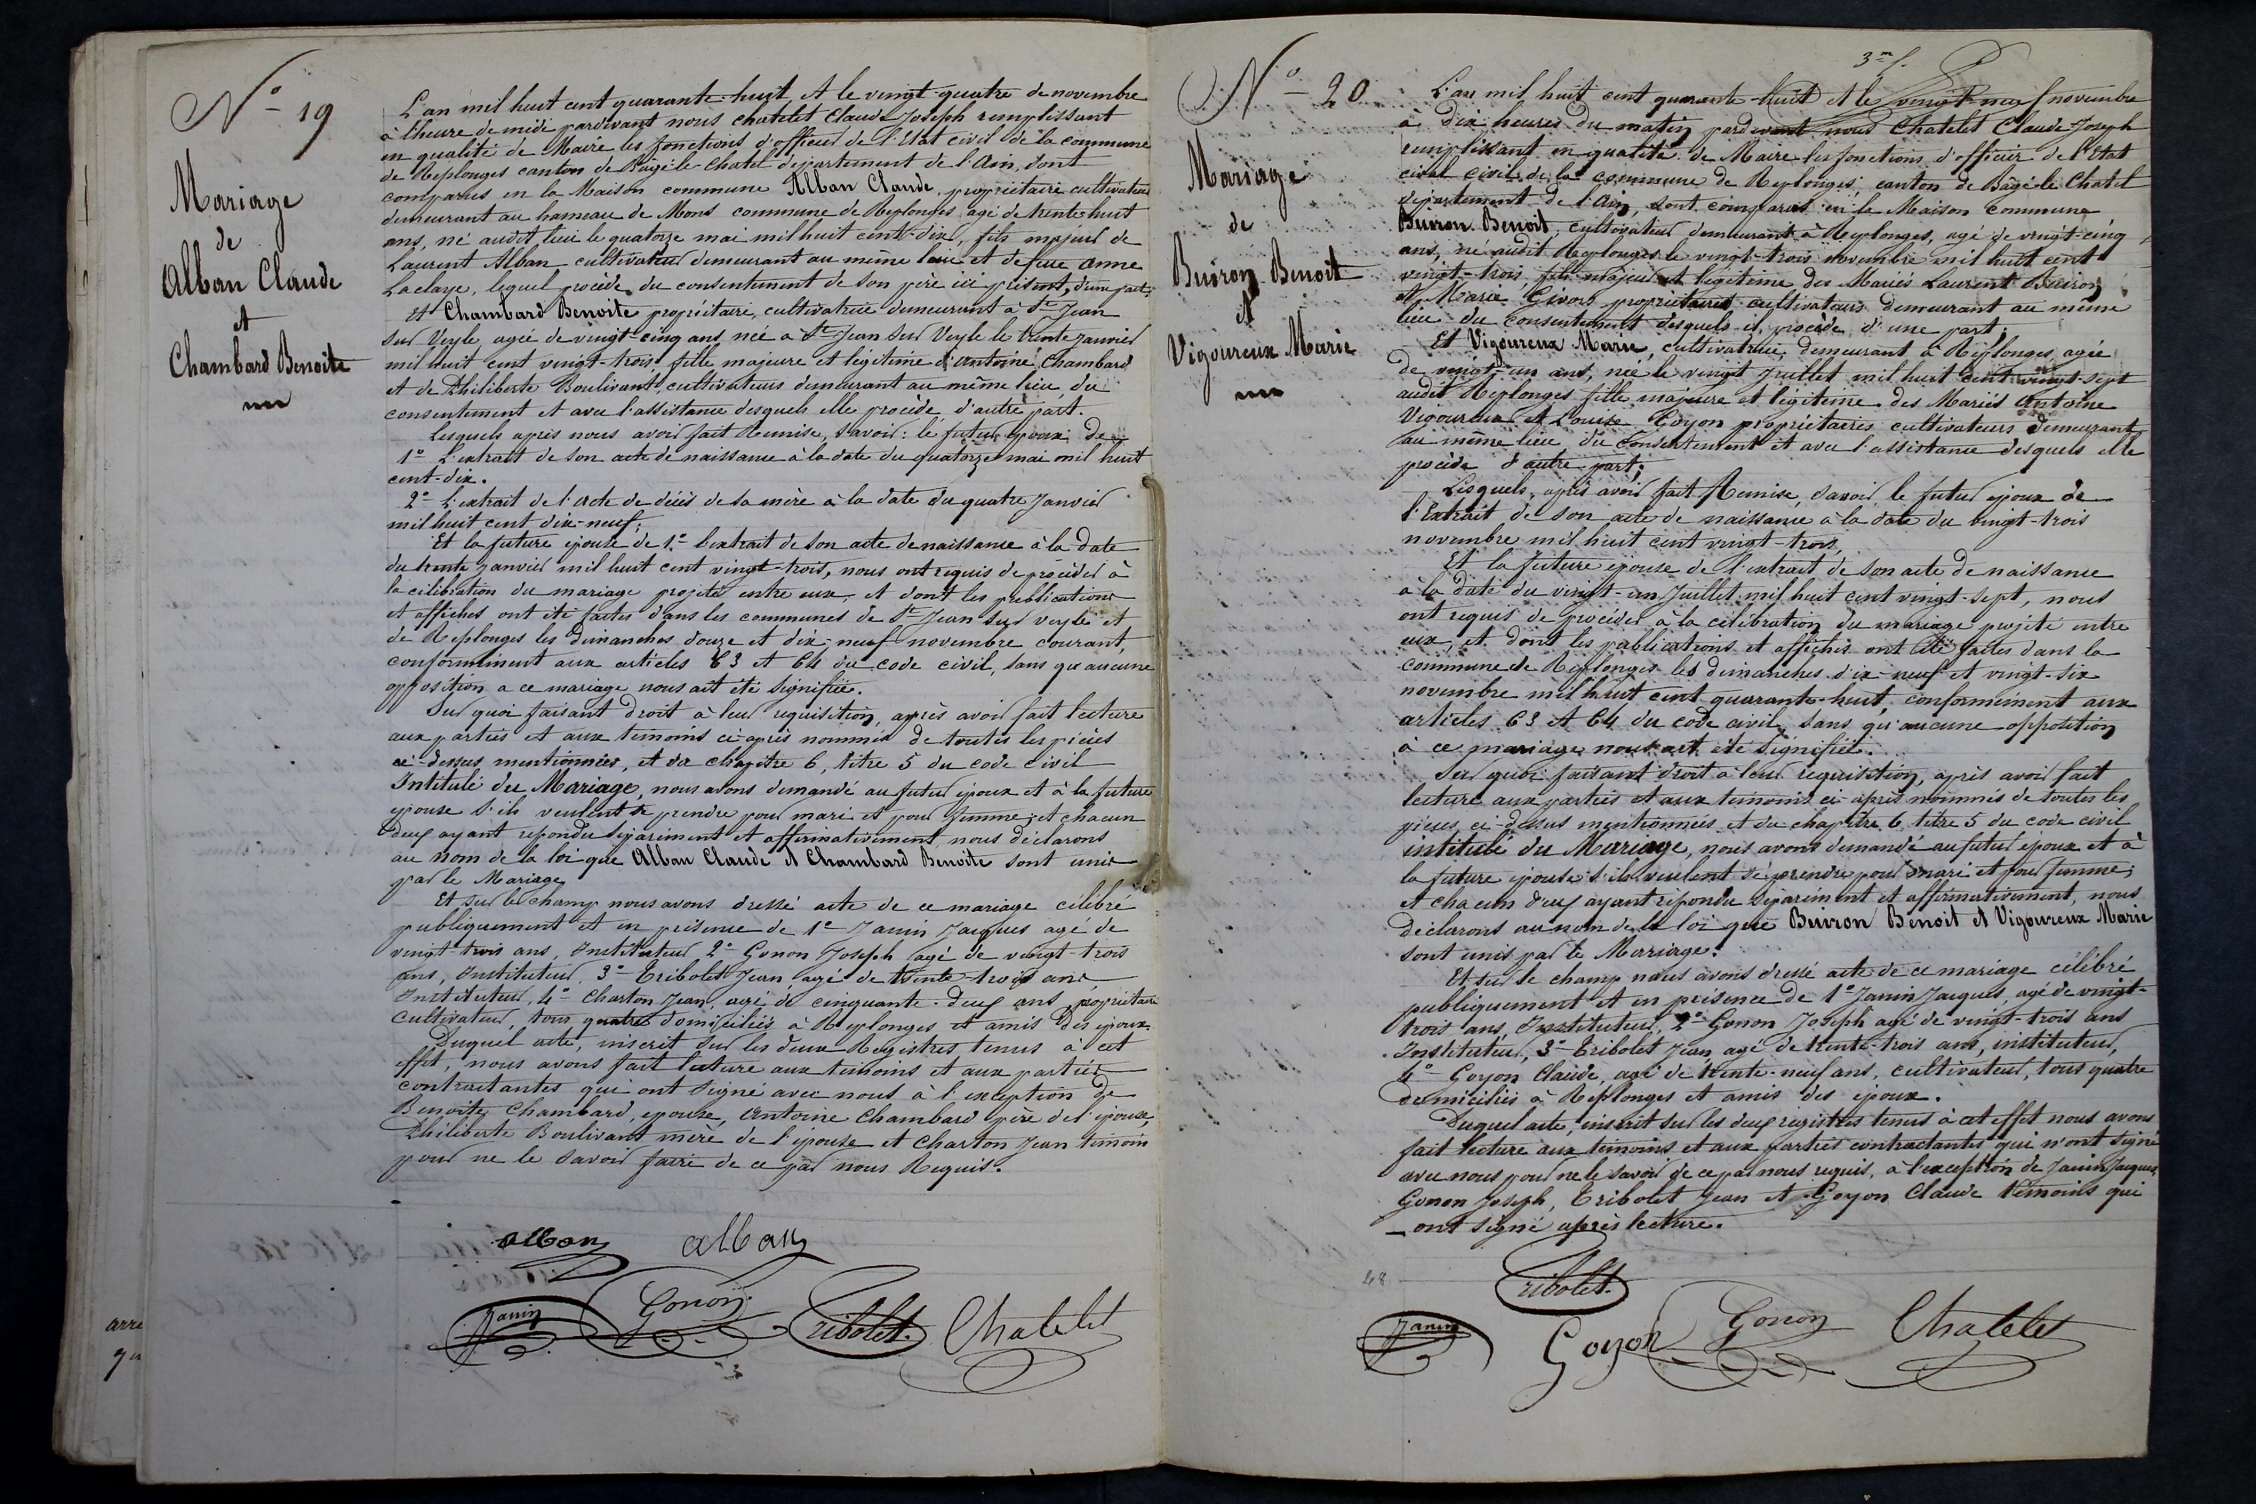 N° 19
Mariage
de
Alban Claude
et
Chambard Benoite
L'an mil huit cent quarante-huit et le vingt quatre de novembre
à l'heure de midi pardevant nous Chatelet Claude Joseph remplissant
en qualité de Maire les fonctions d'officier de l'Etat civil de la commune
de Replonges canton de Bâgé le Chatel département de l'Ain, sont
comparus en la Maison commune Alban Claude, propriétaire cultivateur
demeurant au hameau de Mons commune de Replonges agé de trente huit
ans, né audit lieu le quatorze mai mil huit cent dix, fils majeur de
Laurent Alban cultivateur demeurant au même lieu et de feue Anne
Laclaye, lequel procède du consentement de son père ici présent, d'une part;
Et Chambard Benoite propriétaire, cultivatrice demeurant à St Jean
sur Veyle, agée de vingt-cinq ans, née à St Jean sur Veyle le trente janvier
mil huit cent vingt-trois, fille majeure et légitime d'Antoine Chambard
et de Philiberte Boulivant, cultivateurs demeurant au même lieu, du
consentement et avec l'assistance desquels elle procède, d'autre part.
Lesquels après nous avoir fait Remise, savoir: le futur époux de
1° L'extrait de son acte de naissance à la date du quatorze mai mil huit
cent-dix.
2° L'extrait de l'acte de décès de sa mère à la date du quatre Janvier
mil huit cent dix-neuf;
Et la future épouse de 1° l'extrait de son acte de naissance à la date
du trente janvier mil huit cent vingt-trois, nous ont requis de procéder à
la célébration du mariage projeté entre eux, et dont les publications
et affiches ont été faites dans les communes de St Jean sur veyle et
de Replonges les dimanches douze et dix-neuf novembre courant,
conformément aux articles 63 et 64 du code civil, sans qu'aucune
opposition a ce mariage nous ait été signifiée.
Sur quoi faisant droit à leur requisition, après avoir fait lecture
aux parties et aux témoins ci-après nommés de toutes les pièces
ci-dessus mentionnées, et du chapitre 6, titre 5 du code civil
Intitulé du Mariage, nous avons demandé au futur époux et à la future
épouse s'ils veulent se prendre pour mari et pour femme; et chacun
d'eux ayant répondu séparément et affirmativement nous déclarons
au nom de la loi que Alban Claude et Chambard Benoite sont unis
par le Mariage,
Et sur le champ nous avons dressé acte de ce mariage célébré
publiquement et en présence de 1° Janin Jacques agé de
vingt-trois ans, Instituteur 2° Gonon Joseph agé de vingt-trois
ans, Instituteur, 3° Tribolet Jean, agé de trente-trois ans,
Instituteur, 4° Charton Jean, agé de cinquante-deux ans, propriétaire
cultivateur, tous quatre domiciliés à Replonges et amis des époux.
Duquel acte, inscrit sur les deux Registres tenus à cet
effet, nous avons fait lecture aux témoins et aux parties
contractantes qui ont signé avec nous à l'exception de
Benoite Chambard, épouse, Antoine Chambard père de l'épouse,
Philiberte Boulivant mère de l'épouse et Charton Jean témoin
pour ne le savoir faire de ce par nous Requis.
alban alban
Janin Gonon Tribolet Chatelet
3me f.
N° 20
Mariage
de
Buiron Benoit
et
Vigoureux Marie
L'an mil huit cent quarante-huit et le vingt-neuf novembre
à dix heures du matin pardevant nous Chatelet Claude-Joseph
remplissant en qualité de Maire les fonctions d'officier de l'Etat
civil civil de la commune de Replonges, canton de Bâgé-le-Chatel
département de l'Ain, sont comparus en la Maison commune
Buiron Benoit, cultivateur demeurant à Replonges, agé de vingt-cinq
ans, né audit Replonges le vingt-trois novembre mil huit cent
vingt-trois, fils majeur et légitime des Mariés Laurent Buiron
et Marie Givors propriétaires cultivateurs demeurant au même
lieu du consentement desquels il procède d'une part,
Et Vigoureux Marie, cultivatrice, demeurant à Replonges, agée
de vingt-un ans, née le vingt Juillet mil huit cent vingt-sept
audit Replonges fille majeure et légitime des Mariés Antoine
Vigoureux et Louise Goyon propriétaires cultivateurs demeurant
au même lieu du consentement et avec l'assistance desquels elle
procède d'autre part;
Lesquels, après avoir fait Remise, savoir le futur époux de
l'Extrait de son acte de naissance à la date du vingt-trois
novembre mil huit cent vingt-trois,
Et la future épouse de l'extrait de son acte de naissance
à la date du vingt-un Juillet mil huit cent vingt-sept, nous
ont requis de procéder à la célébration du mariage projeté entre
eux, et dont les publications et affiches ont été faites dans la
commune de Replonges les dimanches dix-neuf et vingt-six
novembre mil huit cent quarante-huit, conformément aux
articles 63 et 64 du code civil, sans qu'aucune opposition
à ce mariage nous ait été signifiée.
Sur quoi faisant droit à leur requisition, après avoir fait
lecture aux parties et aux témoins ci-après nommés de toutes les
pièces ci-dessus mentionnées et du chapitre 6, titre 5 du code civil
intitulé du Mariage, nous avons demandé au futur époux et à
la future épouse s'ils veulent se prendre pour mari et pour femme;
et chacun d'eux ayant répondu séparément et affirmativement, nous
déclarons au nom de la loi que Buiron Benoit et Vigoureux Marie
sont unis par le Marriage.
Et sur le champ nous avons dressé acte de ce mariage célébré
publiquement et en présence de 1° Janin Jacques, agé de vingt-
trois ans, Instituteur, 2° Gonon Joseph agé de vingt-trois ans
Instituteur, 3° Tribolet Jean, agé de trente-trois ans, instituteur,
4° Goyon Claude, agé de trente-neuf ans, cultivateur, tous quatre
domiciliés à Replonges et amis des époux.
Duquel acte, inscrit sur les deux registres tenus à cet effet nous avons
fait lecture aux témoins et aux parties contractantes qui n'ont signé
avec nous pour ne le savoir de ce par nous requis, à l'exception de Janin Jacques,
Gonon Joseph, Tribolet Jean et Goyon Claude témoins qui
ont signé après lecture.
48
Tribolet.
Janin Goyon Gonon Chatelet